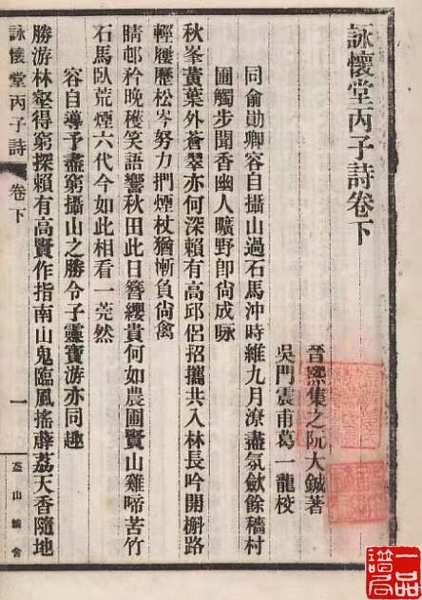 詠懷堂丙子詩卷下
晉熙集之阮大鋮著
吳門震甫葛一龍校
同俞勛卿容自攝山過石馬沖時維九月潦盡氛斂餘穡村
圃觸步聞香幽人曠野卽尙成咏
秋峯黃葉外蒼翠亦何深賴有高邱侶招攜共入林長吟開槲路
輕屐歷松岑努力捫煙杖猶慚負尙禽
晴邨矜晚穫笑語響秋田此日簪纓貴何如農圃賢山雞啼苦竹
石馬臥荒煙六代今如此相看一莞然
容自導予盡窮攝山之勝令子靈寶游亦同趣
勝游林壑得窮探賴有高賢作指南山鬼臨風搖薜荔天香隨地
詠懷堂丙子詩
卷下
一
盔山䊷舍
一品譜局